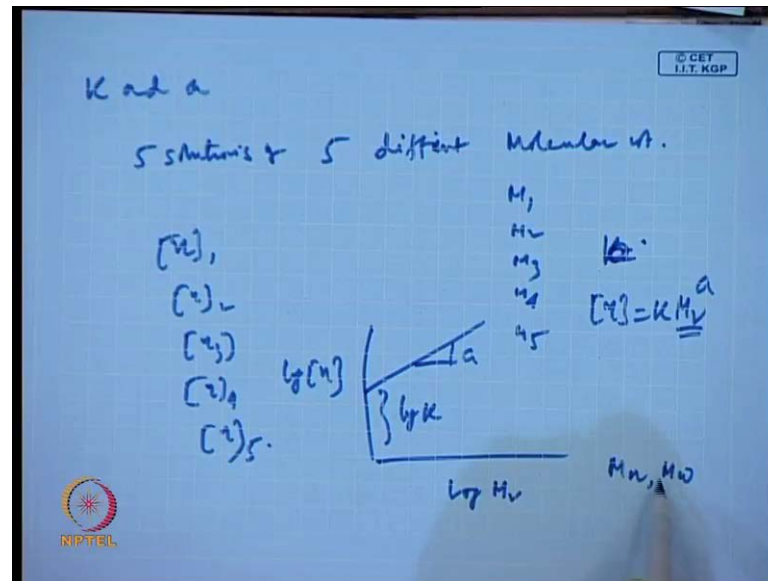 © CET
I.I.T. KGP
K and a
5 solutions of 5 different Molecular wt.
M1
M2
M3
M4
M5
[η]1
[η]2
[η3]
[η]4
[η]5.
[η] = K Mv^a
log [η]
a
log K
log Mv
Mn, Mw
NPTEL